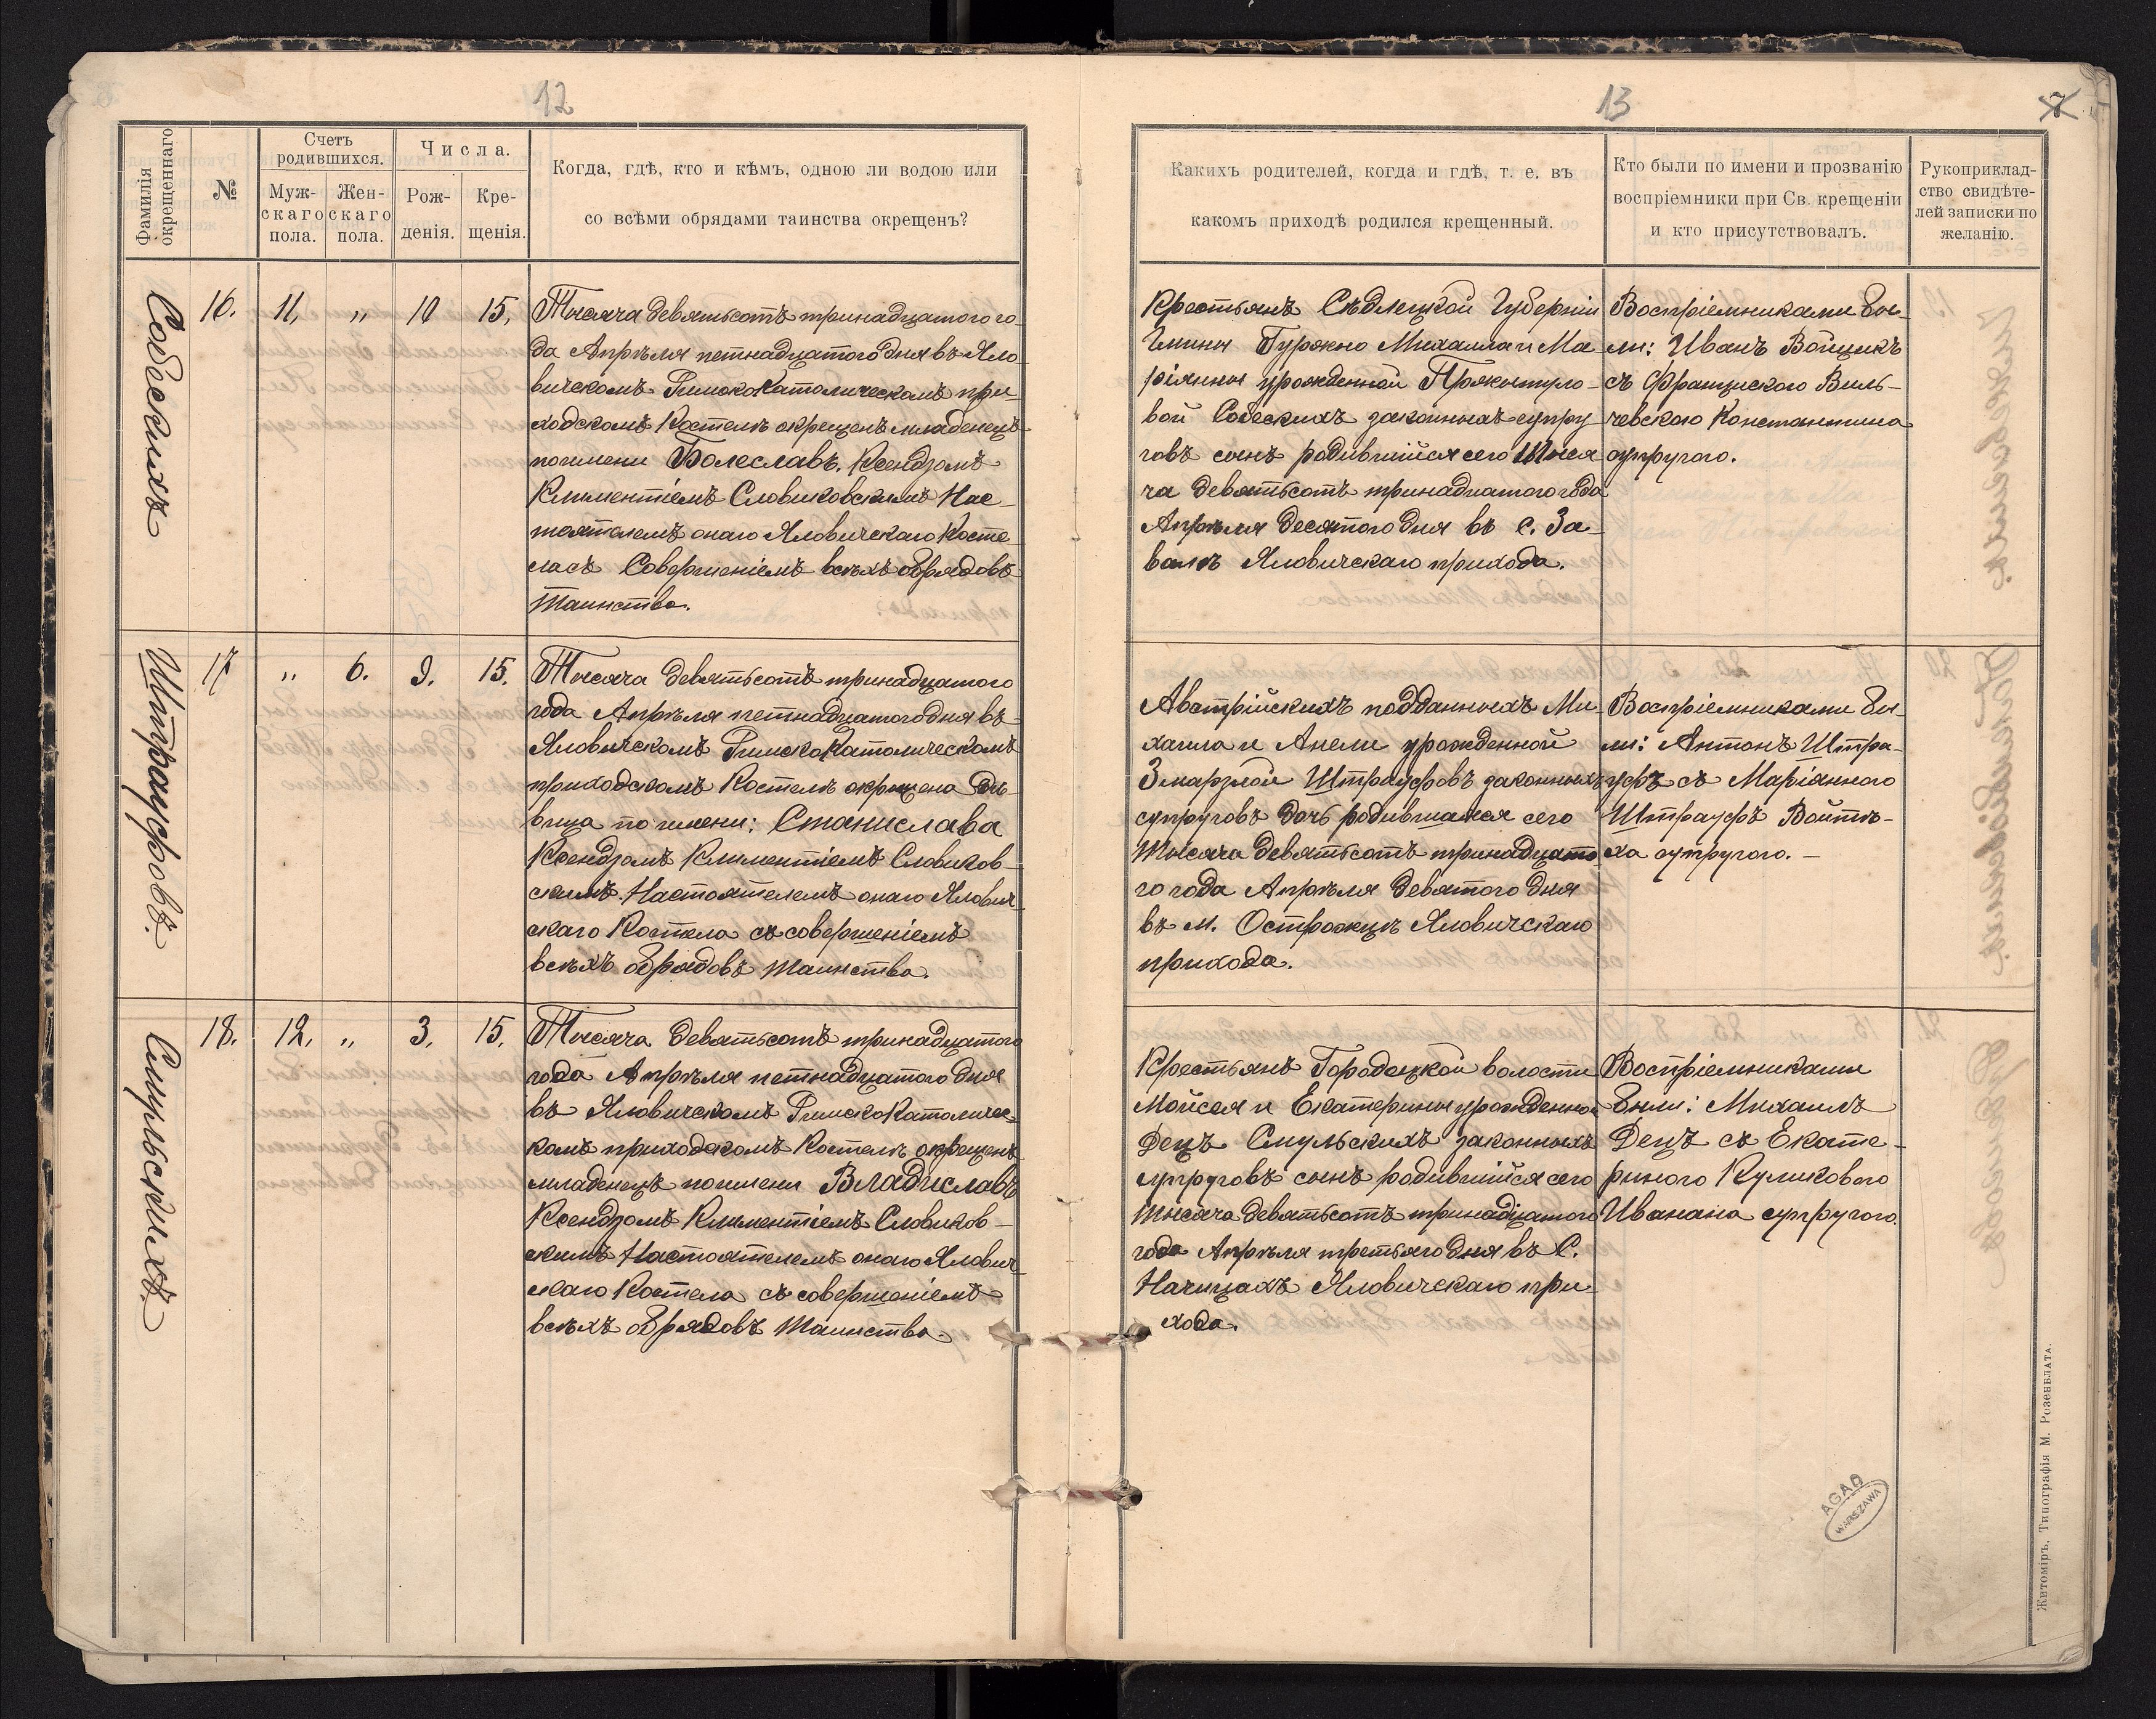 12
Фамилія
окрещеннаго
№
Счетъ
родившихся.
Муж-
скаго
пола.
Жен-
скаго
пола.
Числа.
Рож-
денія.
Кре-
щенія.
Когда, гдѣ, кто и кѣмъ, одною ли водою или
со всѣми обрядами таинства окрещенъ?
Собескихъ
16.
11,
"
10
15,
Тысяча девятьсотъ тринадцатого го-
да Апрѣля петнадцатого дня въ Яло-
вичскомъ Римско Католическомъ при-
ходскомъ Костелѣ окрещенъ младенецъ
по имени Болеславъ. Ксендзомъ
Климентіемъ Словиковскимъ Нас-
тоятелемъ онаго Яловичскаго Косте
ла съ Совершеніемъ всѣхъ обрядовъ
Таинства.
Штрауфовъ.
17
"
6.
9.
15.
Тысяча девятьсотъ тринадцатого
года Апрѣля петнадцатого дня въ
Яловичскомъ Римско Католическомъ
приходскомъ Костелѣ окрещена дѣ-
вица по имени: Станислава
Ксендзомъ Климентіемъ Словиков-
скимъ Настоятелемъ онаго Ялович-
скаго Костела съ совершеніемъ
всѣхъ обрядовъ таинства.
Смульскихъ.
18.
12.
"
3.
15.
Тысяча девятьсотъ тринадцатого
года Апрѣля петнадцатого дня
въ Яловичскомъ Римско Католичес-
комъ приходскомъ Костелѣ окрещенъ
младенецъ по имени Владиславъ
Ксендзомъ Климентіемъ Словиков-
скимъ Настоятелемъ онаго Ялович-
скаго Костела съ совершеніемъ
всѣхъ обрядовъ таинства.
13
7
Какихъ родителей, когда и гдѣ, т. е. въ
какомъ приходѣ родился крещенный.
Кто были по имени и прозванію
воспріемники при Св. крещеніи
и кто присутствовалъ.
Рукоприклад-
ство свидѣте-
лей записки по
желанію.
Крестьянъ Сѣдлецкой Губерніи
Гмины Гуржно Михаила и Ма
ріянны урожденной
вой Собескихъ законныхъ супру
говъ сынъ родившійся сего тыся
ча девятьсотъ тринадцатого года
Апрѣля десятого дня въ с. За-
валѣ Яловичскаго прихода.
Воспріемниками бы-
ли: Иванъ Войцикъ
съ Францискою Виль-
чевскою Константина
супругою.
Австрійскихъ подданныхъ Ми-
хаила и Анели урожденной
Змарзлой Штрауфовъ законныхъ
супруговъ дочь родившаяся сего
тысяча девятьсотъ тринадцато
го года Апрѣля девятого дня
въ м. Острожцѣ Яловичскаго
прихода.
Воспріемниками бы-
ли: Антонъ Штра-
уфъ съ Маріянною
Штрауфъ Войтѣ-
ха супругою. —
Крестьянъ Городецкой волости
Мойсея и Екатерины урожденной
Децъ Смульскихъ законныхъ
супруговъ сынъ родившійся сего
тысяча девятьсотъ тринадцатого
года Апрѣля третьяго дня въ С.
Начицахъ Яловичскаго при-
хода.
Воспріемниками
были: Михаилъ
Децъ съ Екате-
риною Куликовою
Ивана супругою.
AGAD
WARSZAWA
Житоміръ, Типографія М. Розенблата.